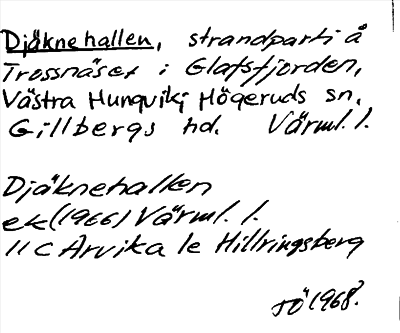 Djäknehallen, strandparti å
Trossnäset i Glafsfjorden,
Västra Hungvik, Högeruds sn,
Gillbergs hd. Värml. l.
Djäknehallen
ek (1966) Värml. l.
11 C Arvika 1e Hillringsberg
SÖ 1968.